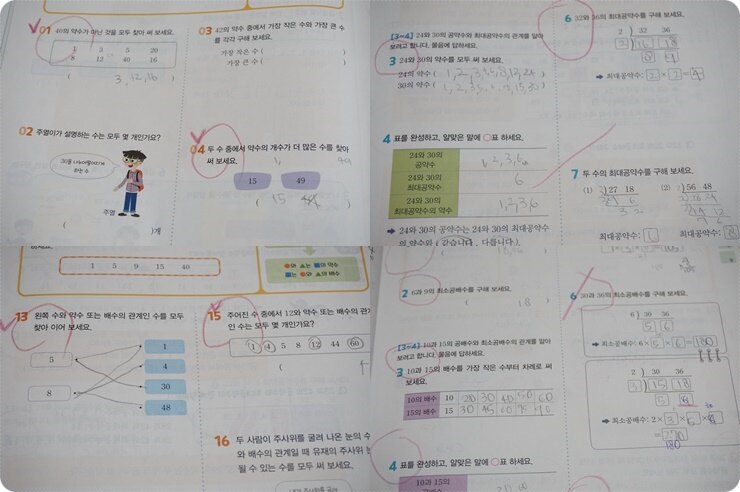 01 40의 약수가 아닌 것을 모두 찾아 써 보세요.
1 3 5 20
8 12 40 16
( 3, 12, 16 )
02 주열이가 설명하는 수는 모두 몇 개인가요?
30을 나누어떨어지게
하는 수
주열
( )개
03 42의 약수 중에서 가장 작은 수와 가장 큰 수
를 각각 구해 보세요.
가장 작은 수 ( )
가장 큰 수 ( )
04 두 수 중에서 약수의 개수가 더 많은 수를 찾아
써 보세요.
15 49
( 15 )
[3~4] 24와 30의 공약수와 최대공약수의 관계를 알아
보려고 합니다. 물음에 답하세요.
3 24와 30의 약수를 모두 써 보세요.
24의 약수 (
30의 약수 (
4 표를 완성하고, 알맞은 말에 ○표 하세요.
24와 30의
공약수
1, 2, 3, 6
24와 30의
최대공약수
6
24와 30의
최대공약수의 약수
1, 2, 3, 6
➡ 24와 30의 공약수는 24와 30의 최대공약수
의 약수와 ( 같습니다 , 다릅니다 ).
6 32와 36의 최대공약수를 구해 보세요.
2 ) 32 36
2 ) 16 18
8 9
➡ 최대공약수: 2 × 2 = 4
7 두 수의 최대공약수를 구해 보세요.
(1) 27 18
(2) 56 48
최대공약수:
최대공약수: 8
1 5 9 15 40
●와 ▲는 ■의 약수
■는 ●와 ▲의 배수
13 왼쪽 수와 약수 또는 배수의 관계인 수를 모두
찾아 이어 보세요.
5
8
1
4
30
48
15 주어진 수 중에서 12와 약수 또는 배수의 관계
인 수는 모두 몇 개인가요?
1 4 5 8 12 44 60
(
16 두 사람이 주사위를 굴려 나온 눈의 수
와 배수의 관계일 때 유재의 주사위 눈
될 수 있는 수를 모두 써 보세요.
2 6과 9의 최소공배수를 구해 보세요.
( 18 )
[3~4] 10과 15의 공배수와 최소공배수의 관계를 알아
보려고 합니다. 물음에 답하세요.
3 10과 15의 배수를 가장 작은 수부터 차례로 써
보세요.
10의 배수 10 20 30 40 50 60
15의 배수 15 30 45 60 75 90
4 표를 완성하고, 알맞은 말에 ○표 하세요.
10과 15의
6 30과 36의 최소공배수를 구해 보세요.
6 ) 30 36
5 6
➡ 최소공배수: 6 × 5 × 6 = 180
2 ) 30 36
3 ) 15 18
5
➡ 최소공배수: 2 × 3 × 5 ×
180